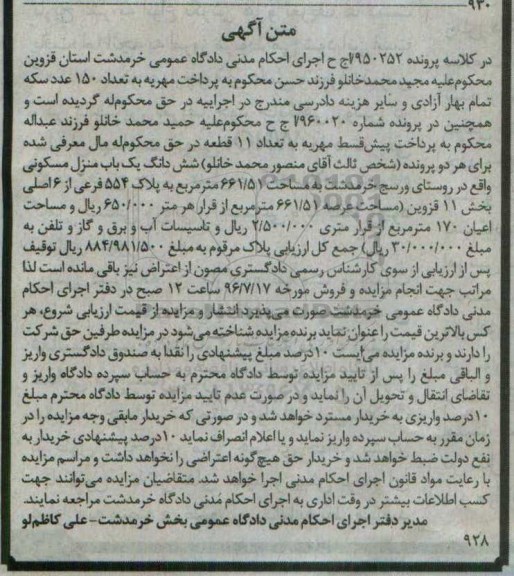 ۹۳۰
متن آگهی
در کلاسه پرونده ۹۵۰۲۵۲/اج ح اجرای احکام مدنی دادگاه عمومی خرمدشت استان قزوین
محکوم‌علیه مجید محمدخانلو فرزند حسن محکوم به پرداخت مهریه به تعداد ۱۵۰ عدد سکه
تمام بهار آزادی و سایر هزینه دادرسی مندرج در اجراییه در حق محکوم‌له گردیده است و
همچنین در پرونده شماره ۹۶۰۰۲۰/اج ح محکوم‌علیه حمید محمد خانلو فرزند عبداله
محکوم به پرداخت پیش‌قسط مهریه به تعداد ۱۱ قطعه در حق محکوم‌له مال معرفی شده
برای هر دو پرونده (شخص ثالث آقای منصور محمد خانلو) شش دانگ یک باب منزل مسکونی
واقع در روستای ورسج خرمدشت به مساحت ۶۶۱/۵۱ مترمربع به پلاک ۵۵۴ فرعی از ۶ اصلی
بخش ۱۱ قزوین (مساحت عرصه ۶۶۱/۵۱ مترمربع از قرار هر متر ۶۵۰/۰۰۰ ریال و مساحت
اعیان ۱۷۰ مترمربع از قرار متری ۲/۵۰۰/۰۰۰ ریال و تاسیسات آب و برق و گاز و تلفن به
مبلغ ۳۰/۰۰۰/۰۰۰ ریال) جمع کل ارزیابی پلاک مرقوم به مبلغ ۸۸۴/۹۸۱/۵۰۰ ریال توقیف
پس از ارزیابی از سوی کارشناس رسمی دادگستری مصون از اعتراض نیز باقی مانده است لذا
مراتب جهت انجام مزایده و فروش مورخه ۹۶/۷/۱۷ ساعت ۱۲ صبح در دفتر اجرای احکام
مدنی دادگاه عمومی خرمدشت صورت می‌پذیرد انتشار و مزایده از قیمت ارزیابی شروع، هر
کس بالاترین قیمت را عنوان نماید برنده مزایده شناخته می‌شود در مزایده طرفین حق شرکت
را دارند و برنده مزایده می‌بایست ۱۰درصد مبلغ پیشنهادی را نقدا به صندوق دادگستری واریز
و الباقی مبلغ را پس از تایید مزایده توسط دادگاه محترم به حساب سپرده دادگاه واریز و
تقاضای انتقال و تحویل آن را نماید و در صورت عدم تایید مزایده توسط دادگاه محترم مبلغ
۱۰درصد واریزی به خریدار مسترد خواهد شد و در صورتی که خریدار مابقی وجه مزایده را در
زمان مقرر به حساب سپرده واریز نماید و یا اعلام انصراف نماید ۱۰درصد پیشنهادی خریدار به
نفع دولت ضبط خواهد شد و خریدار حق هیچ‌گونه اعتراضی را نخواهد داشت و مراسم مزایده
با رعایت مواد قانون اجرای احکام مدنی اجرا خواهد شد. متقاضیان مزایده می‌توانند جهت
کسب اطلاعات بیشتر در وقت اداری به اجرای احکام مدنی دادگاه خرمدشت مراجعه نمایند.
مدیر دفتر اجرای احکام مدنی دادگاه عمومی بخش خرمدشت- علی کاظم‌لو
۹۲۸